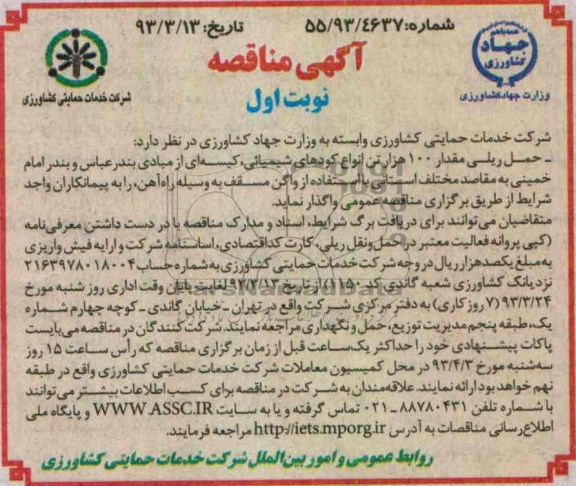 شماره: ۵۵/۹۳/۴۶۳۷
تاریخ: ۹۳/۳/۱۳
جهاد کشاورزی
وزارت جهاد کشاورزی
شرکت خدمات حمایتی کشاورزی
آگهی مناقصه
نوبت اول
شرکت خدمات حمایتی کشاورزی وابسته به وزارت جهاد کشاورزی در نظر دارد:
ـ حمل ریلی مقدار ۱۰۰ هزار تن انواع کودهای شیمیائی، کیسه‌ای از مبادی بندرعباس و بندر امام
خمینی به مقاصد مختلف استانی با استفاده از واگن مسقف به وسیله راه‌آهن، را به پیمانکاران واجد
شرایط از طریق برگزاری مناقصه عمومی واگذار نماید.
متقاضیان می‌توانند برای دریافت برگ شرایط، اسناد و مدارک مناقصه با در دست داشتن معرفی‌نامه
(کپی پروانه فعالیت معتبر در حمل‌ونقل ریلی، کارت کد اقتصادی، اساسنامه شرکت و ارایه فیش واریزی
به مبلغ یکصد هزار ریال در وجه شرکت خدمات حمایتی کشاورزی به شماره حساب ۲۱۶۳۹۷۸۰۱۸۰۰۴
نزد بانک کشاورزی شعبه گاندی کد ۱۱۵۰) از تاریخ ۹۳/۳/۱۳ لغایت پایان وقت اداری روز شنبه مورخ
۹۳/۳/۲۴ (۷ روز کاری) به دفتر مرکزی شرکت واقع در تهران ـ خیابان گاندی ـ کوچه چهارم شماره
یک، طبقه پنجم مدیریت توزیع، حمل و نگهداری مراجعه نمایند. شرکت‌کنندگان در مناقصه می‌بایست
پاکات پیشنهادی خود را حداکثر یک‌ساعت قبل از زمان برگزاری مناقصه که رأس ساعت ۱۵ روز
سه‌شنبه مورخ ۹۳/۴/۳ در محل کمیسیون معاملات شرکت خدمات حمایتی کشاورزی واقع در طبقه
نهم خواهد بود ارائه نمایند. علاقه‌مندان به شرکت در مناقصه برای کسب اطلاعات بیشتر می‌توانند
با شماره تلفن ۸۸۷۸۰۴۳۱ـ۰۲۱ تماس گرفته و یا به سایت WWW.ASSC.IR و پایگاه ملی
اطلاع‌رسانی مناقصات به آدرس http://iets.mporg.ir مراجعه فرمایند.
روابط عمومی و امور بین‌الملل شرکت خدمات حمایتی کشاورزی